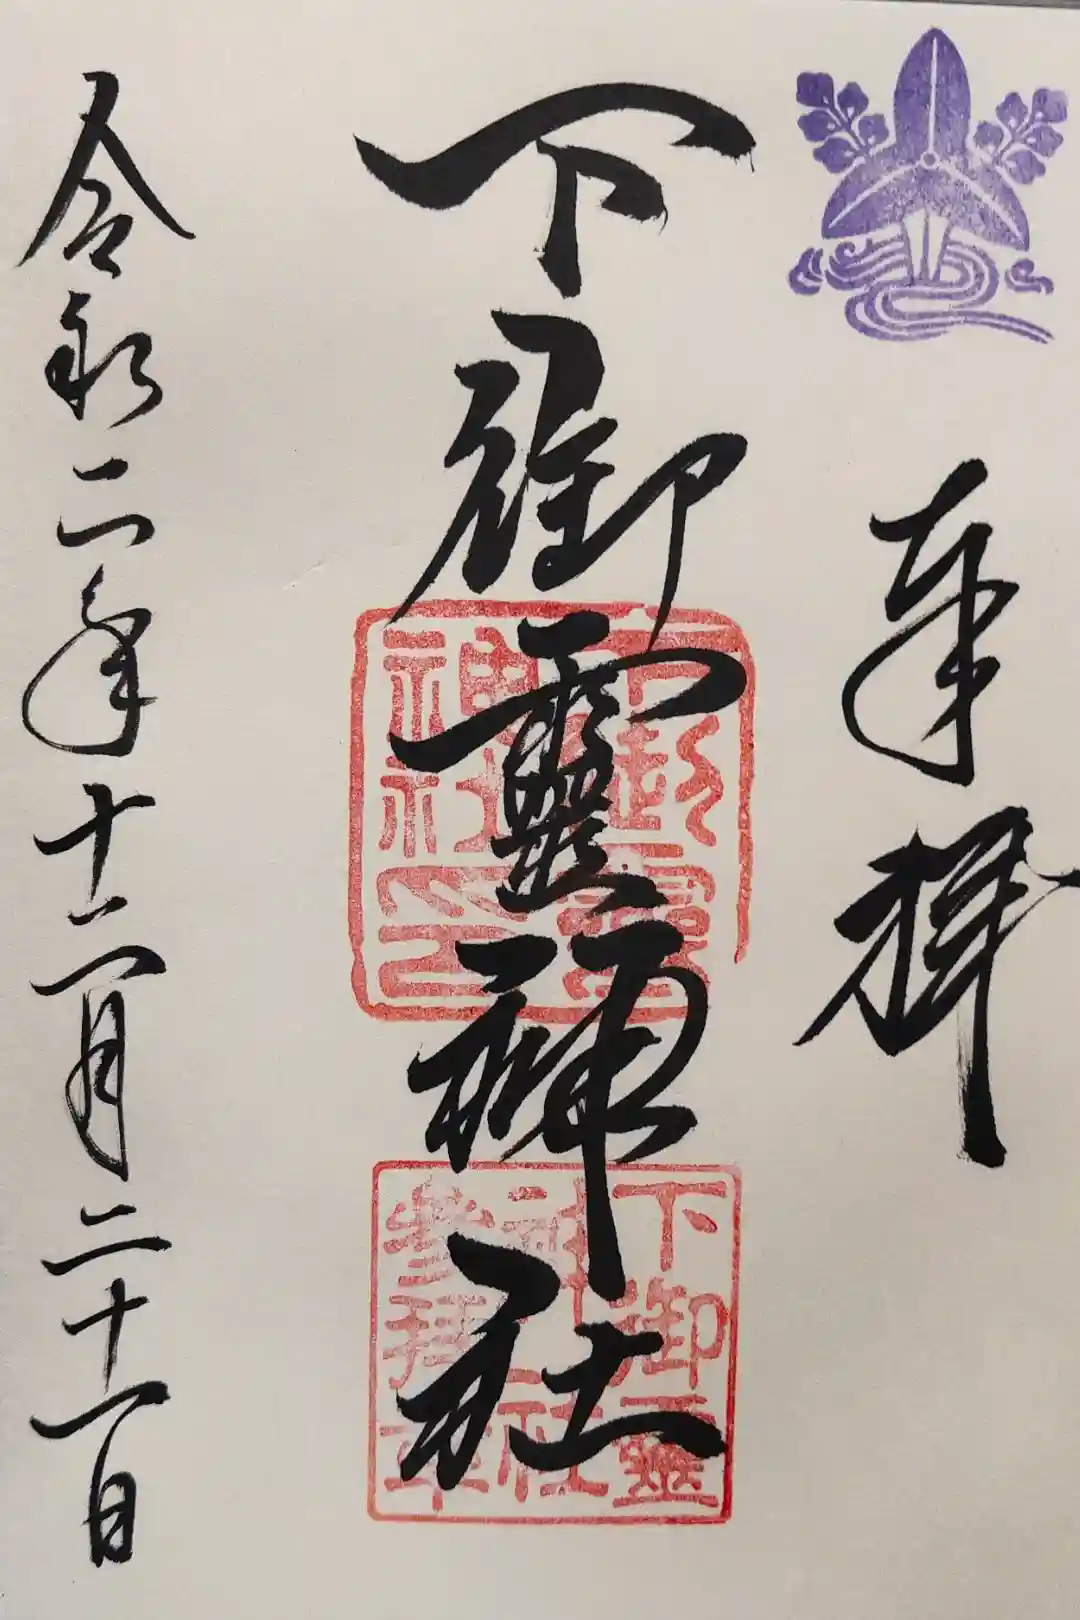 奉拝
下御靈神社
下御霊
神社
下御霊
神社
参拝章
令和二年十一月二十一日